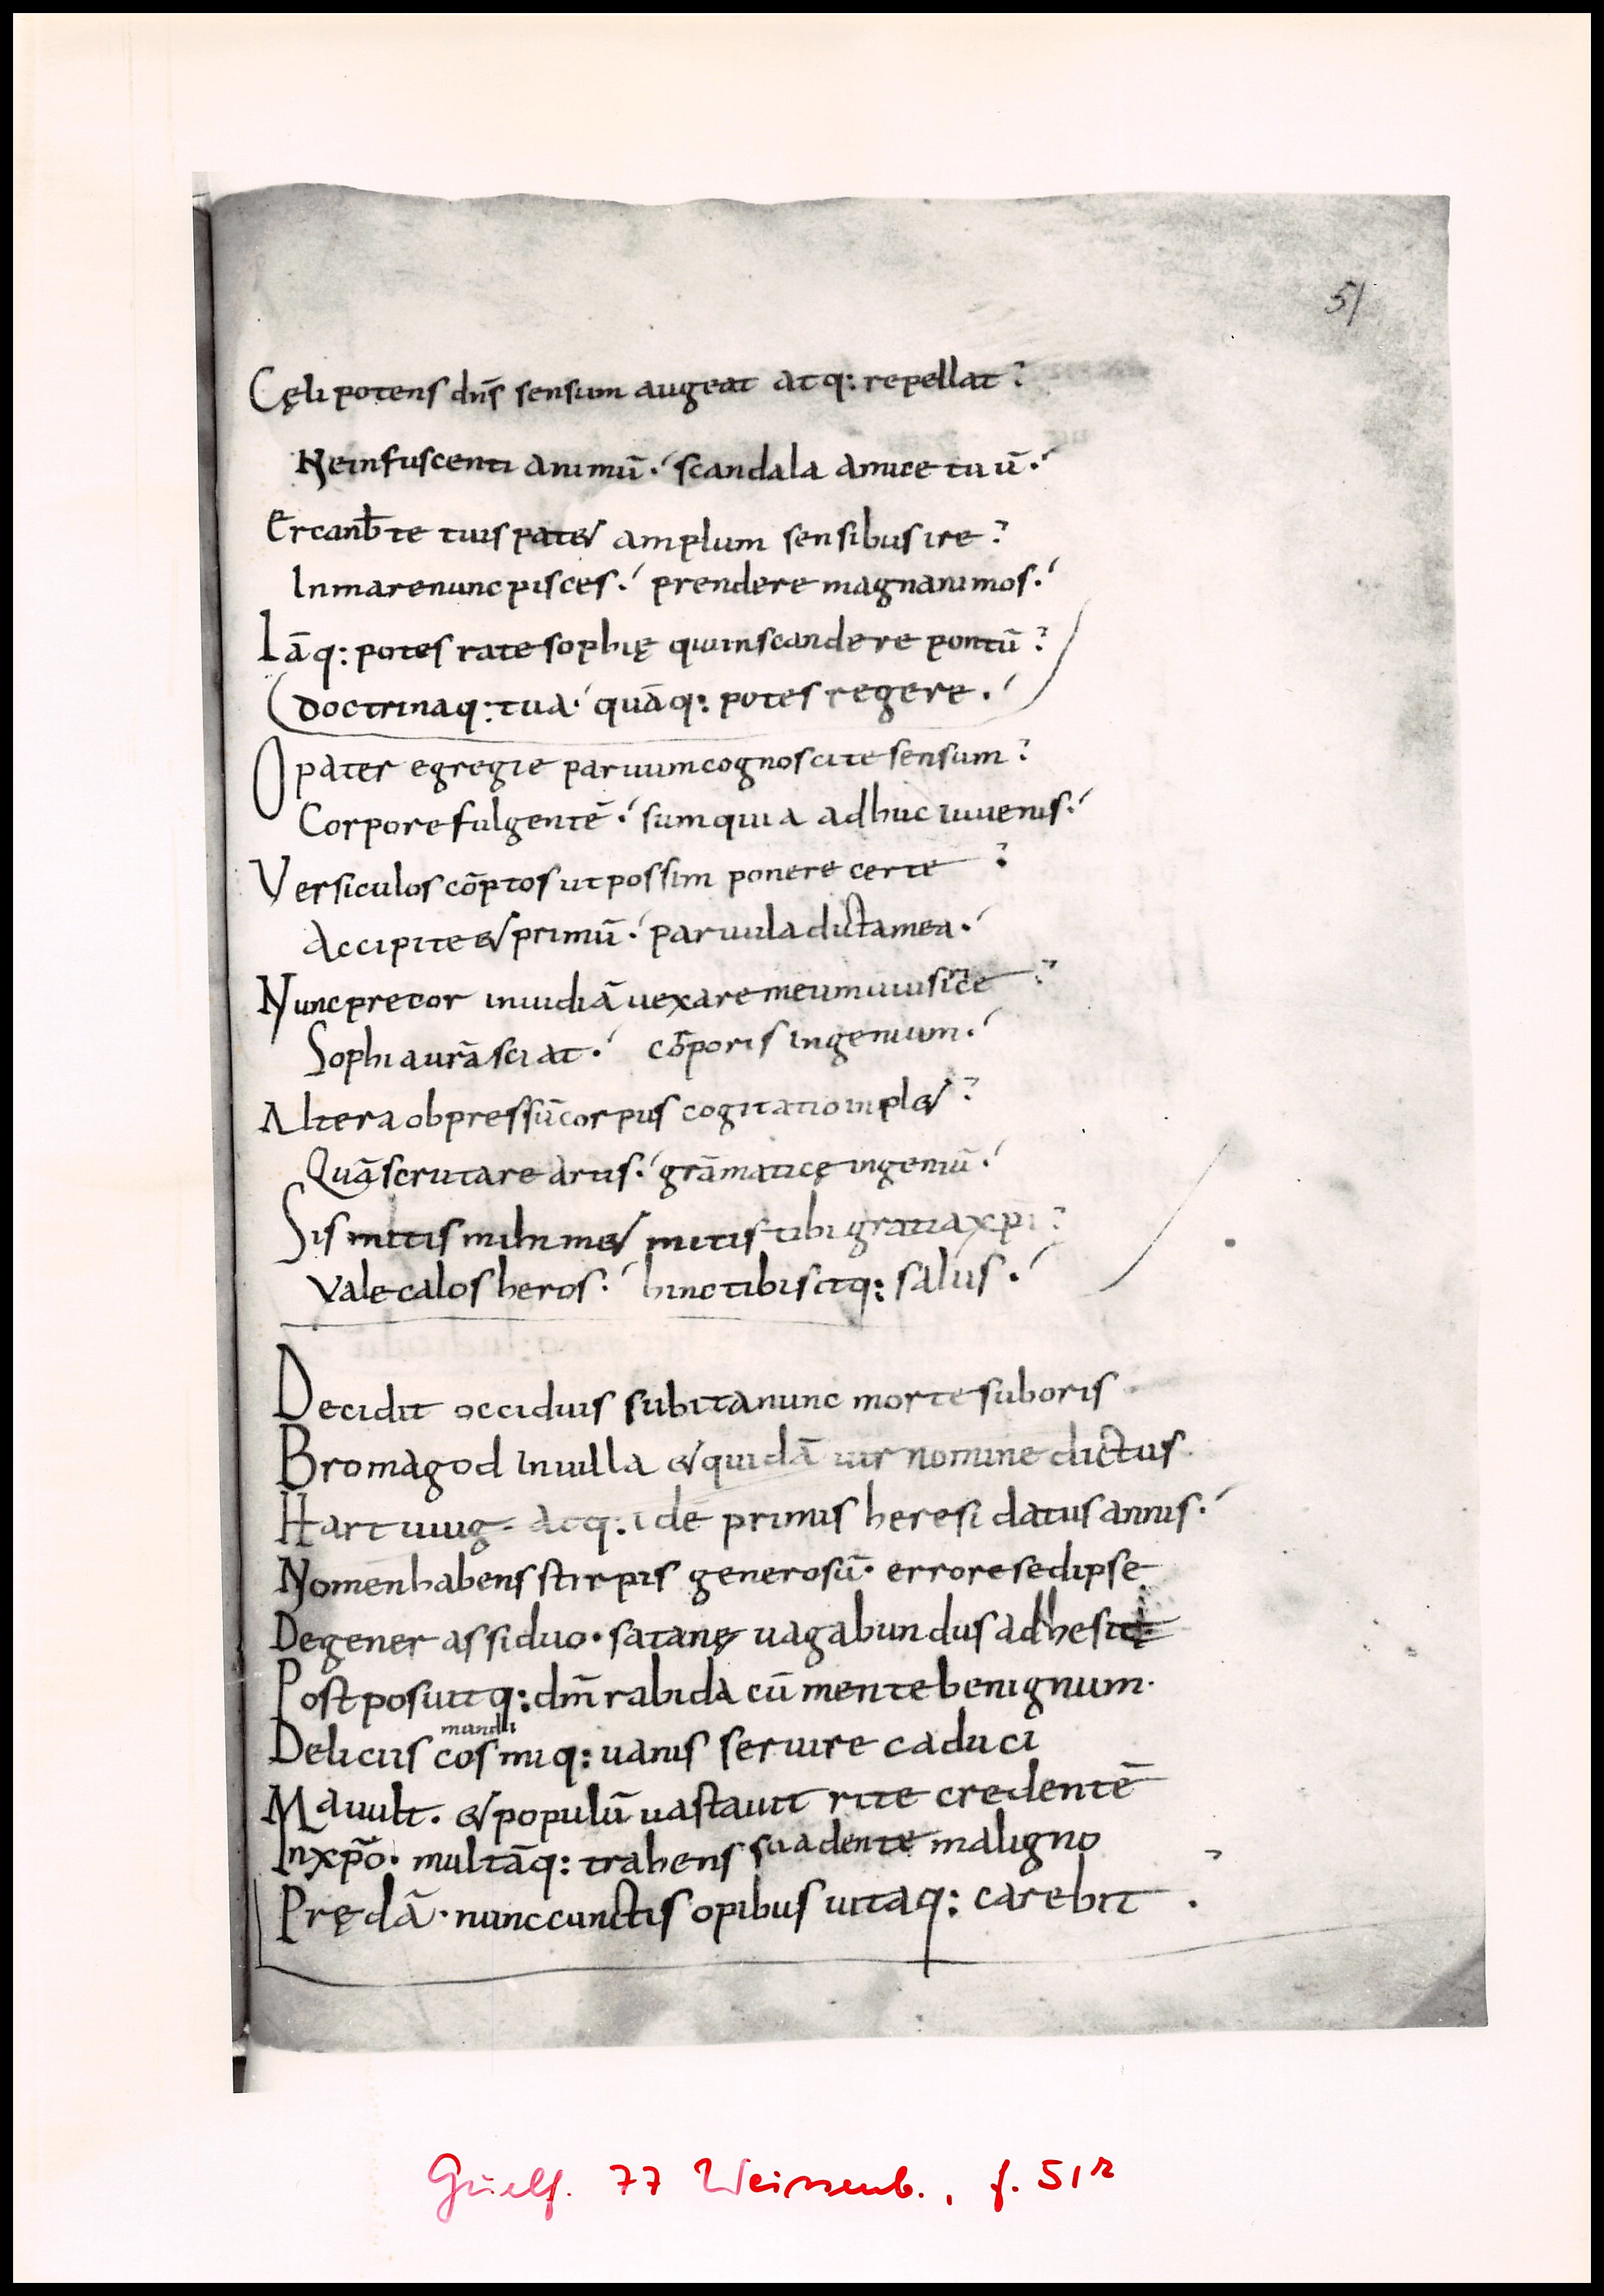 51
Cęli potens dn̄s sensum augeat atq: repellat?
Ne infuscenti animū. scandala amice tuū.
Ercanb̄te tuis patet amplum sensibus ire?
In mare nunc pisces. prendere magnanimos.
Iāq: potes rate sophię quin scandere pontū?
Doctrinaq: tua. quāq: potes regere.
O pater egregie paruum cognoscite sensum?
Corpore fulgentē. sum quia adhuc iuuenis.
Versiculos cōptos ut possim ponere certe?
Accipite & primū. paruula dictamea.
Nunc precor inuidiā uexare meum
Sophia urā sciat. corporis ingenium.
Altera obpressū corpus cogitatio inplet?
Quā scrutare artis. grāmaticę ingeniū.
Sis mitis mihimet mitis tibi gratia xp̄i?
Vale calos heros. hinc tibi sitq: salus.
Decidit occiduis subita nunc morte sub oris
Bromagod in uilla & quidā uir nomine dictus.
Hartuuig. atq: idē primis heresi datus annis.
Nomen habens stirpis generosū. errore sed ipse
Degener assiduo. satanę uagabundus adhesit
Postposuitq: dm̄ rabida cū mente benignum.
mundi
Deliciis cosmiq: uanis seruire caduci
Mauult. & populū uastauit rite credentē
In xp̄o. multāq: trahens suadente maligno
Prędā. nunc cunctis opibus uitaq: carebit?
Guelf. 77 Weissenb., f. 51r